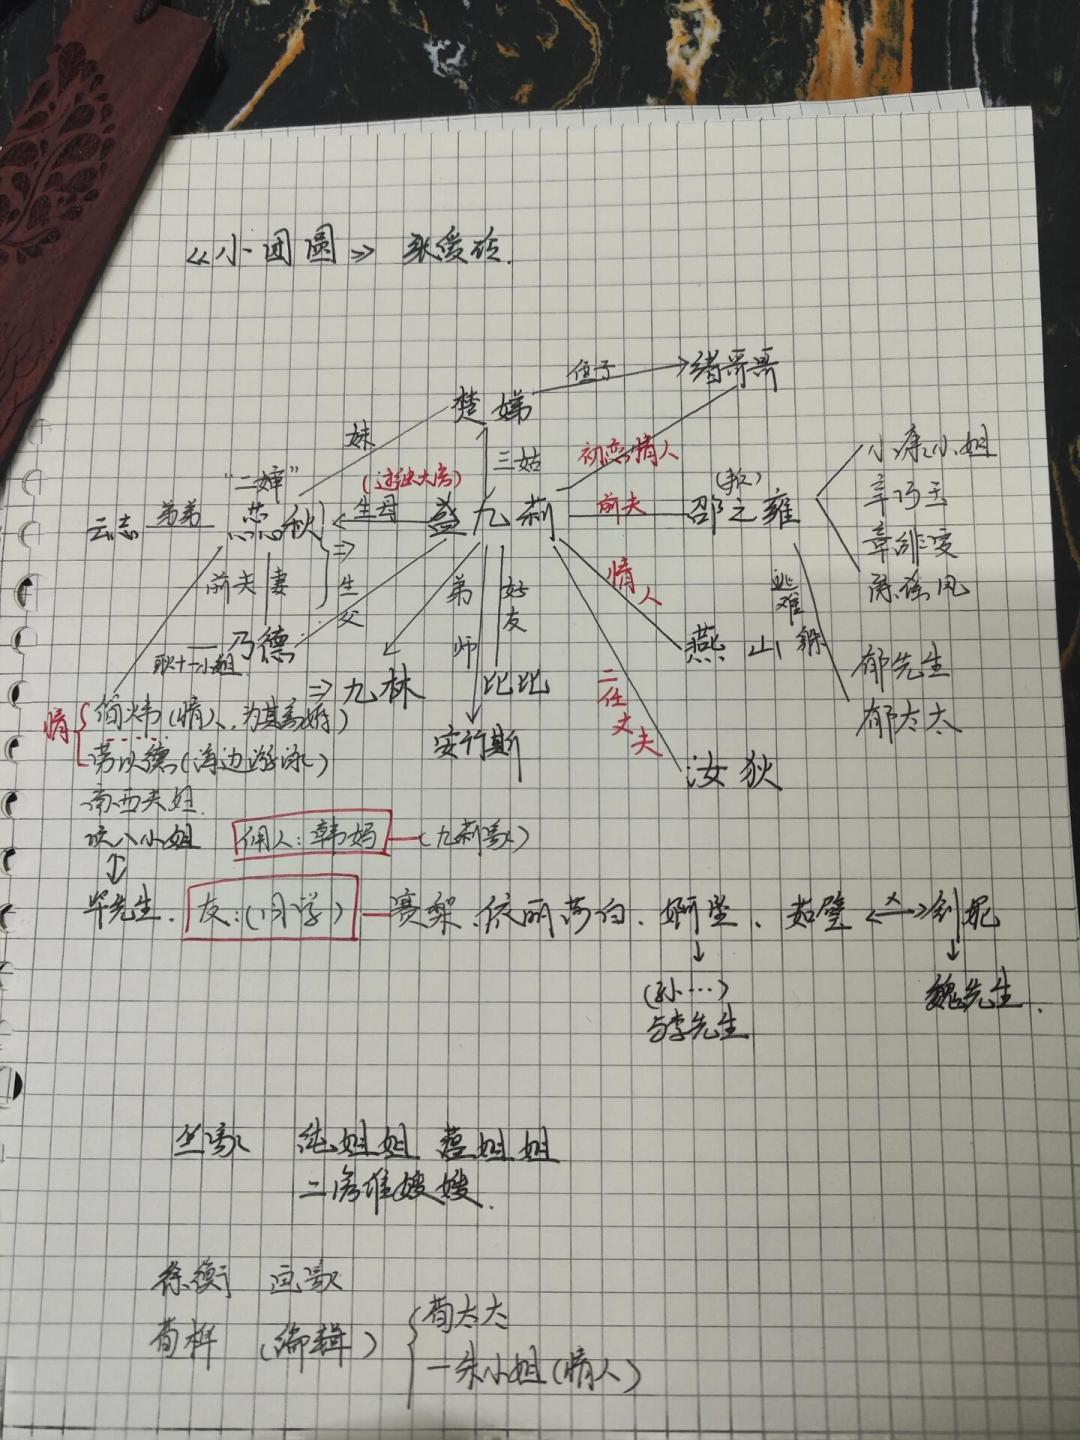 《小团圆》 张爱玲.
楚娣 侄子 绪哥哥
妹 三姑 初恋情人
"二婶" (过继大房) (叛) 小康小姐
云志 弟弟 蕊秋 生母 盛九莉 前夫 邵之雍 章巧玉
前夫 妻 生父 弟 好友 情人 逃难 章非
乃德 师 燕山 躲 郁先生
耿十一小姐 九林 比比 二任丈夫 郁太太
情 简炜(情人,为其离婚) 安竹斯 汝狄
劳以德(海边游泳)
南西夫妇
项八小姐 佣人:韩妈 (九莉家)
毕先生. 友:(同学) 赛梨、依丽莎白、婀坠、茹璧 × 剑妮
(孙…) 魏先生.
与李先生
竺家 纯姐姐 蕴姐姐
二房堆嫂嫂.
徐衡 画家
荀桦 (编辑) 荀太太
一朱小姐(情人)